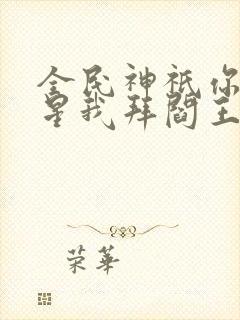 全民神祇你
星我拜閻王
荣華